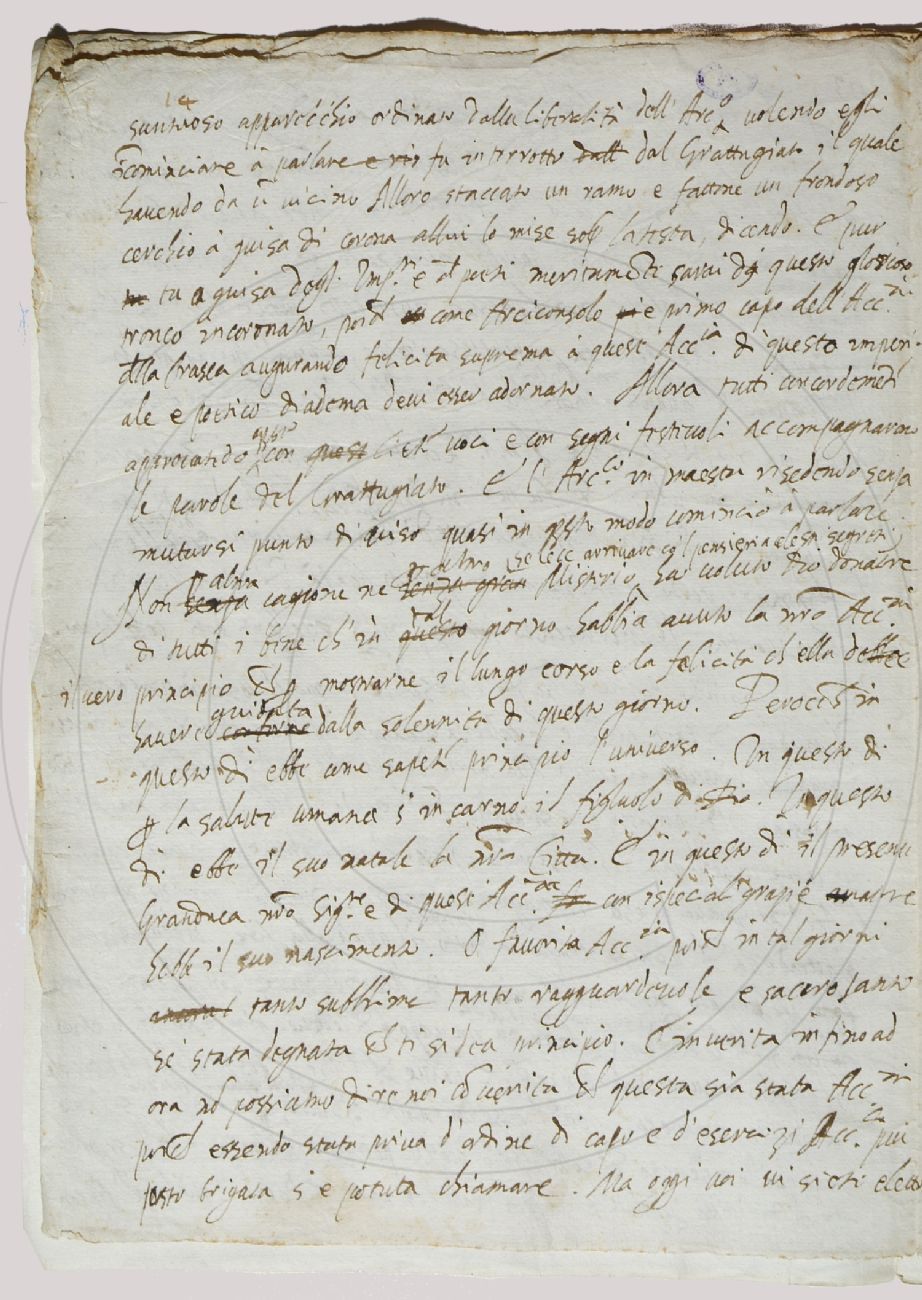 suntuoso apparecchio ordinato dalla liberalità dell' Arc.º volendo egli
cominciare à parlare e fu interrotto dall dal Grattugiato il quale
havendo da ũ vicino Alloro staccato un ramo e fattone un frondoso
cerchio à guisa di corona allui lo mise sop la testa, dicendo. E pur
tu a guisa degl' Imp.ri e d poeti meritamẽte sarai di questo glorioso
tronco incoronato, poiche come Arciconsolo e primo capo dell' Acc.ia
dlla Crusca augurando felicità suprema à quest' Acc.ia di questo imperi-
ale e poetico diadema devi esser adornato. Allora tutti concordemẽte
approvando qsto con quest liete voci e con segni festevoli accompagnarono
le parole del Grattugiato. E l' Arc.lo in maestà risedendo senza
mutarsi punto di viso quasi in qsto modo cominciò à parlare
altra altro
Non senza cagione ne senza gran Misterio ha voluto Dio donatore
di tutti i bene ch' in questo tal giorno habbia avuto la nrã Acc.ia
il vero principio che p mostrarne il lungo corso e la felicità ch' ella debbe
havere guidata dalla solennità di questo giorno. Perocche in
questo dì ebbe come sapete principio l'universo. In questo dì
p la salute umana s' incarnò il figluolo di Dio. In questo
dì ebbe il suo natale la nrã Città. E in questo dì il presente
Granduca nrõ Sig.re e di quest' Acc.ia con ispecial grazie
hebbe il suo nascimento. O favorita Acc.ia poiche in tal giorni
tanto subblime tanto ragguardevole e sacrosanto
se' stata degnata che ti si dea principio. E in verità infino ad
ora nõ possiamo dire noi cõ verità che questa sia stata Acc.ia
poiche essendo stata priva d'ordine di capo e d'esercizi Acc.ia più
psto brigata s' è potuta chiamare. Ma oggi voi vi siete eletto